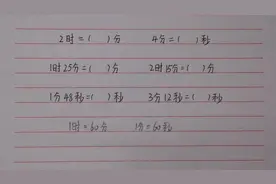 2时=( )分 4分=( )秒
1时25分=( )分 2时15分=( )分
1分48秒=( )秒 3分12秒=( )秒
1时=60分 1分=60秒